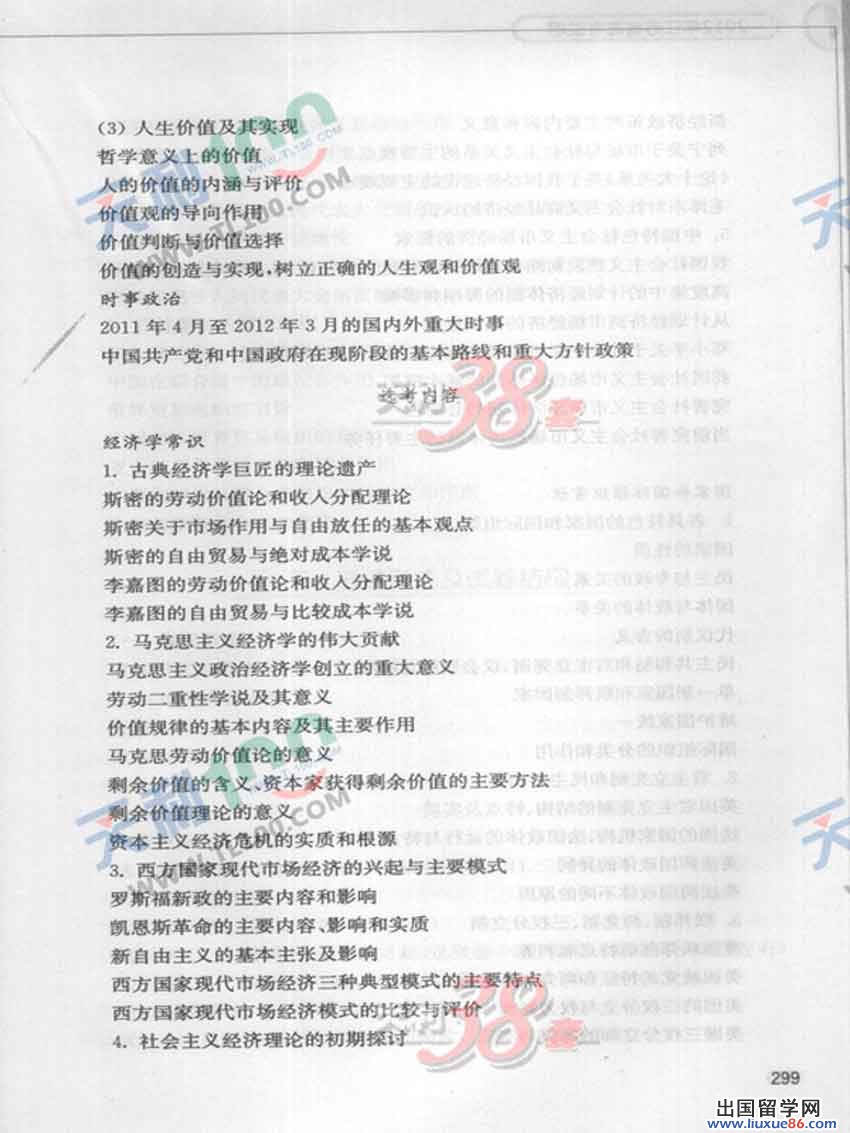 (3) 人生价值及其实现
哲学意义上的价值
人的价值的内涵与评价
价值观的导向作用
价值判断与价值选择
价值的创造与实现,树立正确的人生观和价值观
时事政治
2011年4月至2012年3月的国内外重大时事
中国共产党和中国政府在现阶段的基本路线和重大方针政策
选考内容
经济学常识
1. 古典经济学巨匠的理论遗产
斯密的劳动价值论和收入分配理论
斯密关于市场作用与自由放任的基本观点
斯密的自由贸易与绝对成本学说
李嘉图的劳动价值论和收入分配理论
李嘉图的自由贸易与比较成本学说
2. 马克思主义经济学的伟大贡献
马克思主义政治经济学创立的重大意义
劳动二重性学说及其意义
价值规律的基本内容及其主要作用
马克思劳动价值论的意义
剩余价值的含义、资本家获得剩余价值的主要方法
剩余价值理论的意义
资本主义经济危机的实质和根源
3. 西方国家现代市场经济的兴起与主要模式
罗斯福新政的主要内容和影响
凯恩斯革命的主要内容、影响和实质
新自由主义的基本主张及影响
西方国家现代市场经济三种典型模式的主要特点
西方国家现代市场经济模式的比较与评价
4. 社会主义经济理论的初期探讨
299
天利100
WWW.TL100.COM
天利38套
天利100
WWW.TL100.COM
天利38套
出国留学网
www.liuxue86.com